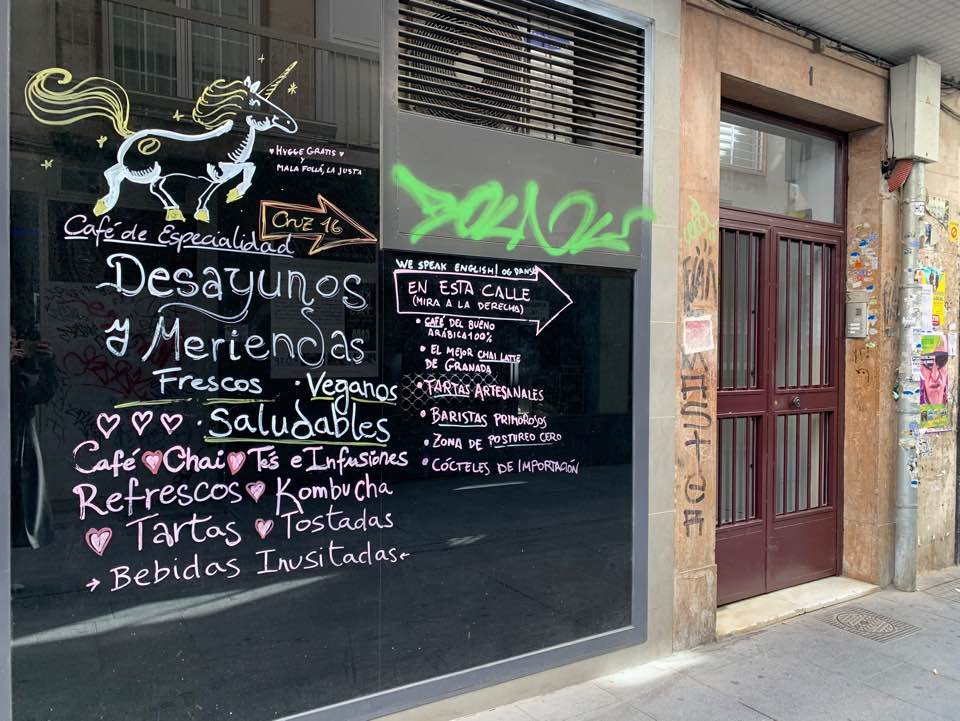 ♥ HYGGE GRATIS ♥
Y
MALA FOLLÁ, LA JUSTA
CRUZ 16
Café de Especialidad
Desayunos
y Meriendas
Frescos · Veganos
· Saludables
Café Chai Tés e Infusiones
Refrescos Kombucha
Tartas Tostadas
→ Bebidas Inusitadas ←
WE SPEAK ENGLISH! OG DANSK
EN ESTA CALLE
(MIRA A LA DERECHA)
• CAFÉ DEL BUENO
ARÁBICA 100%
• EL MEJOR CHAI LATTE
DE GRANADA
• TARTAS ARTESANALES
• BARISTAS PRIMOROSOS
• ZONA DE POSTUREO CERO
• CÓCTELES DE IMPORTACIÓN
1